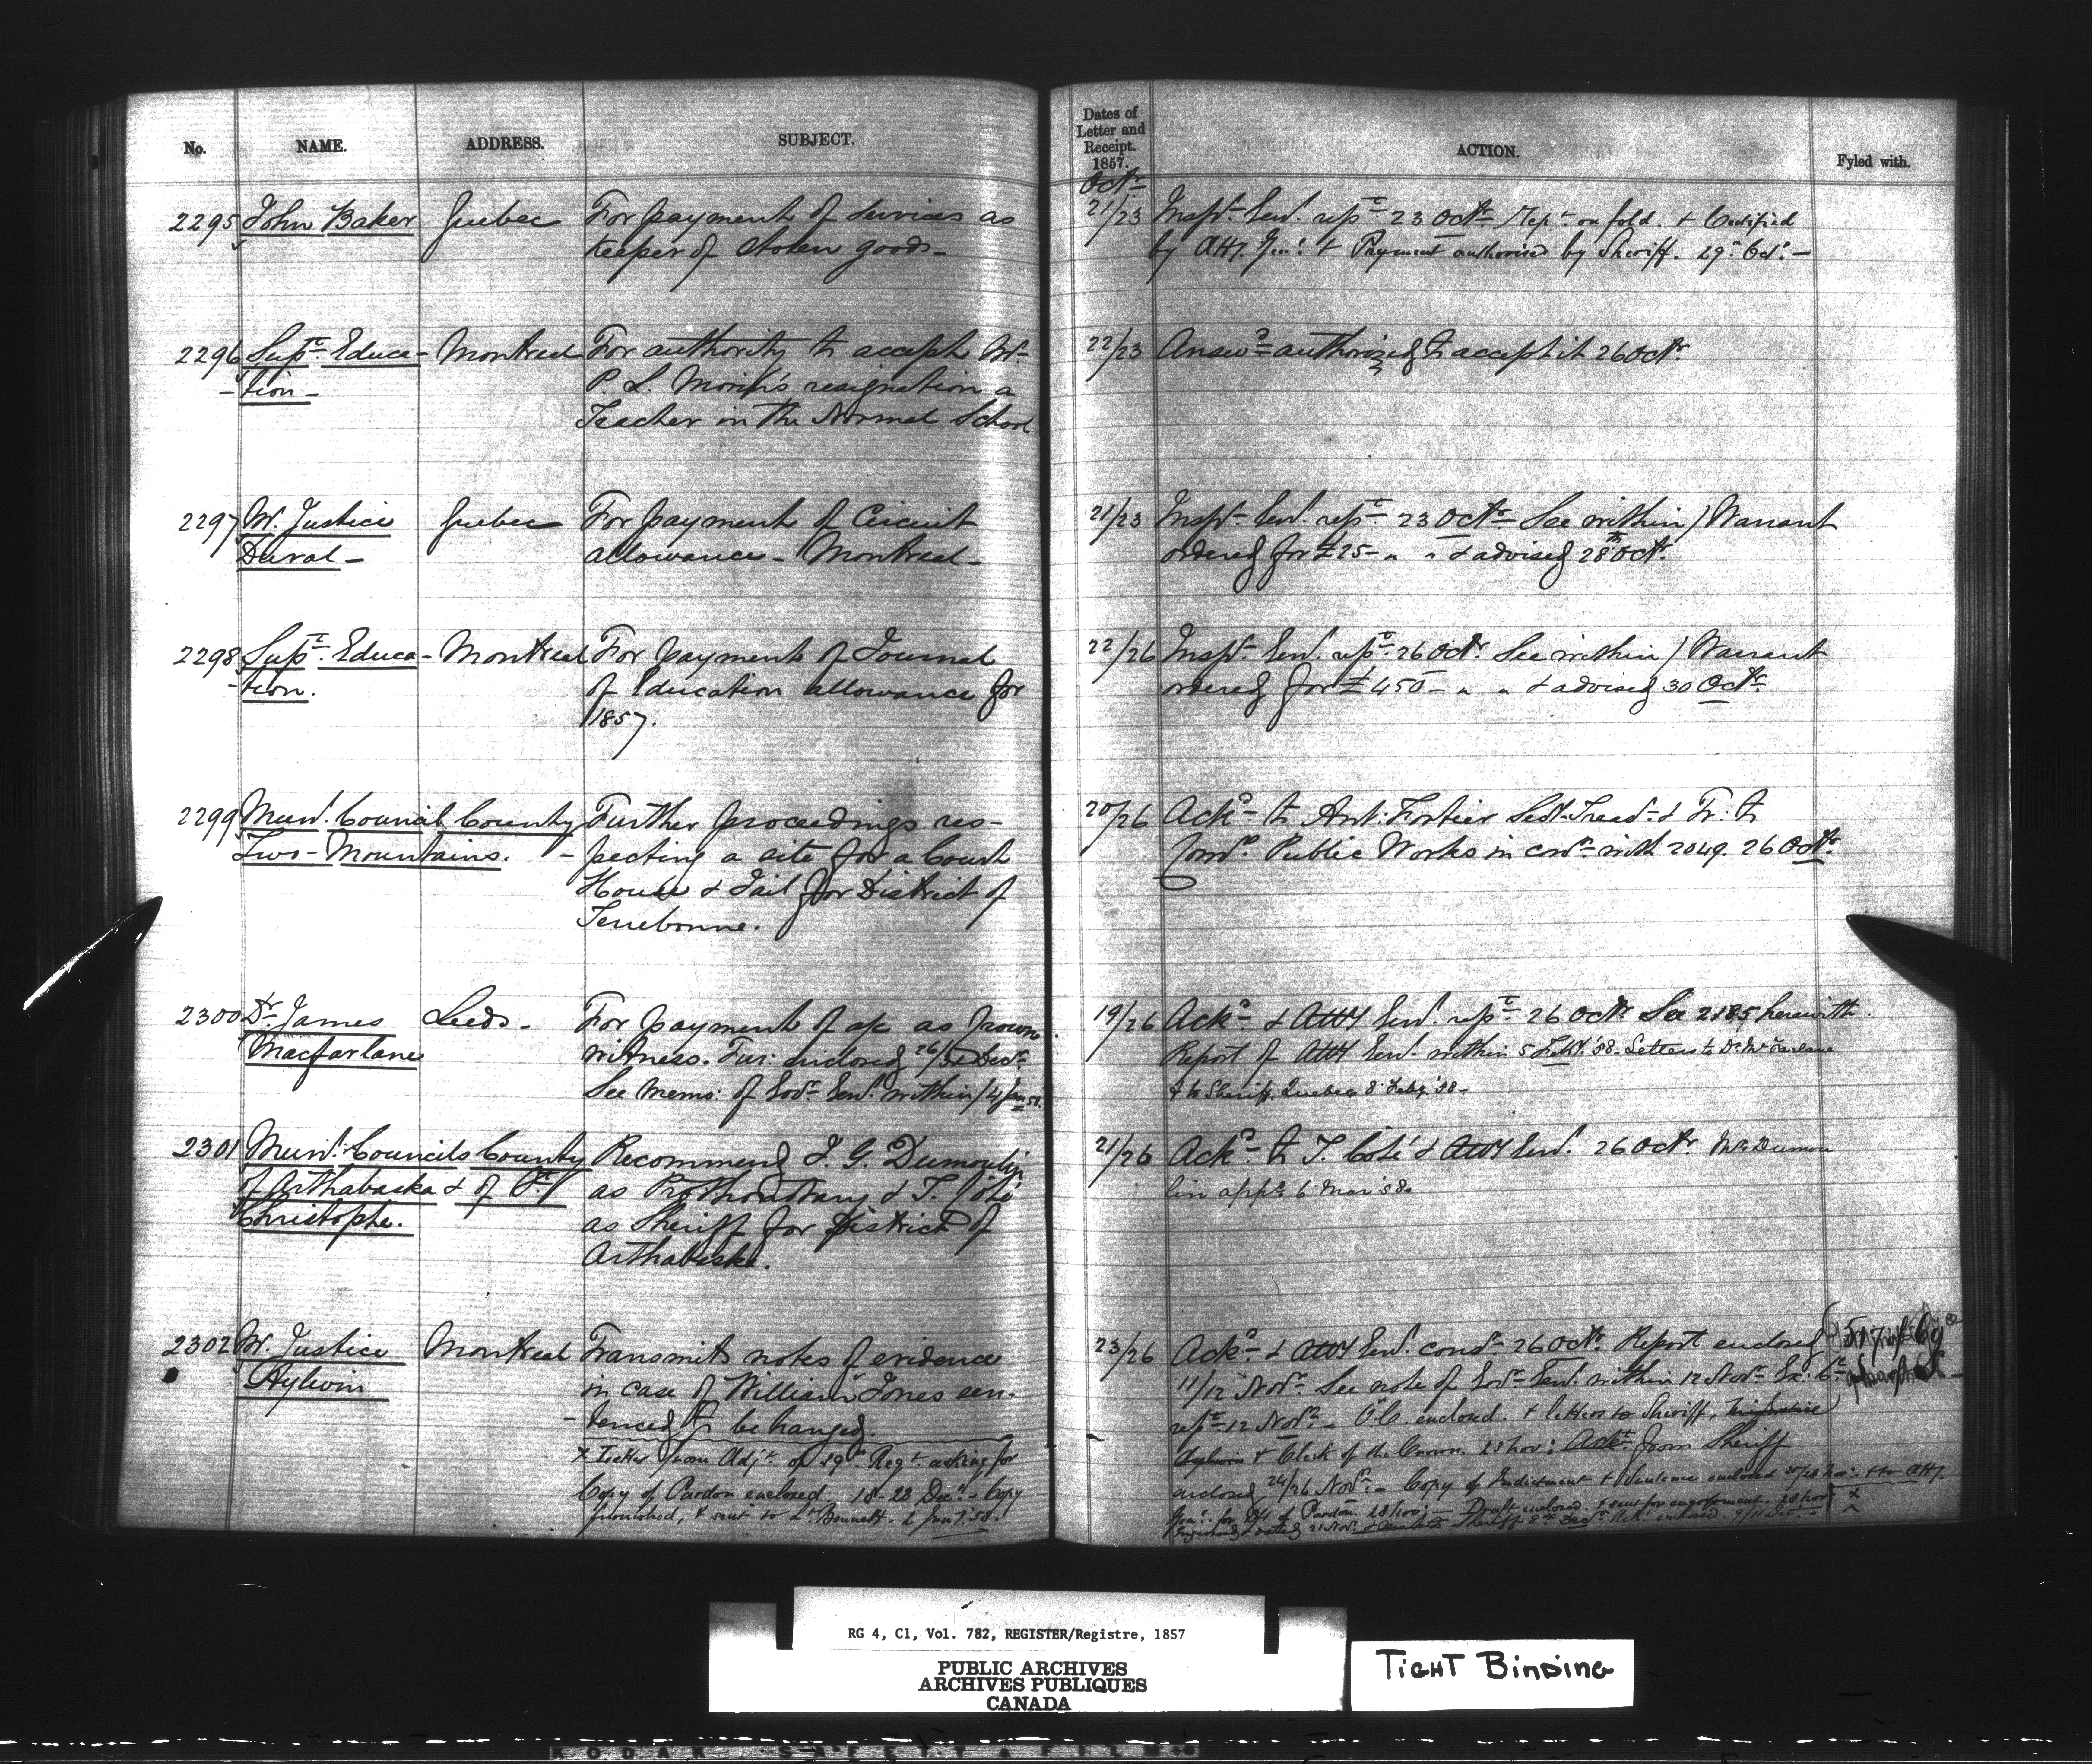 No. NAME. ADDRESS. SUBJECT.
Dates of
Letter and
Receipt.
1857.
ACTION. Fyled with.
Octr
2295 John Baker Quebec For payment of services as 21/23 Inspr Genl. repd 23 Octr Rept on fold. & Certified
keeper of stolen goods— by Atty. Genl. & Payment authorised by Sheriff. 29 Oct. —
2296 Supt Educa- Montreal For authority to accept Mr 22/23 Answd authorized to accept it 26 Octr
-tion— P. L. Morin's resignation a
Teacher in the Normal School
2297 Mr. Justice Quebec For payment of Circuit 21/23 Inspr Genl. repd 23 Octr See within / Warrant
Duval— allowance— Montreal— ordered for £25— " " & advised 28th Octr
2298 Supt. Educa- Montreal For payment of Journal 22/26 Inspr Genl. repd 26 Octr. See within / Warrant
-tion. of Education allowance for ordered for £450— " " & advised 30 Octr
1857.
2299 Munl. Council County Further proceedings res- 20/26 Ackd to Ant: Fortier Secy-Treasr & Tr: to
Two-Mountains. -pecting a site for a Court Comrs. Public Works in conn with 2049. 26 Octr
House & Jail for District of
Terrebonne.
2300 Dr James Leeds— For payment of a/c as Crown 19/26 Ackd & Atty Genl. repd 26 Octr See 2185 herewith.
Macfarlane witness. Fur: enclosed 26/31 Decr Report of Atty Genl. within 5 Feby. '58. Letters to Dr McFarlane
See memo: of Govr Genl. within / 4 Jan 58. & to Sheriff, Quebec 8 Feby '58—
2301 Munl. Councils County Recommend J. G. Dumoulin 21/26 Ackd to T. Coté & Atty Genl. 26 Octr. Mr. Dumou
of Arthabaska & of St. as Prothonotary & T. Coté lin appd 6 Mar '58.
Christophe. as Sheriff for District of
Arthabaska.
2302 Mr. Justice Montreal Transmits notes of evidence 23/26 Ackd & Atty Genl. 26 Octr. Report enclosed
Aylwin in case of William Jones sen- 11/12 Novr See note of Govr Genl. within 12 Novr Ex: Cl
-tenced to be hanged. repd 12 Novr— O.C. enclosed. & letters to Sheriff,
x Letter from Adjt of 39 Regt asking for Aylwin & Clerk of the Crown. 23 Nov: Ackt from Sheriff
Copy of Pardon enclosed. 18-23 Decr.— Copy enclosed 24/26 Novr— Copy of Indictment & Sentence enclosed
furnished, & sent to Lt. Bennett. 2 Jany '58. Genl. for Dft of Pardon. 28 Nov; — Draft enclosed. & sent for engrossment. 28 Nov x
RG 4, C1, Vol. 782, REGISTER/Registre, 1857
PUBLIC ARCHIVES
ARCHIVES PUBLIQUES
CANADA
TIGHT BINDING
KODAK SAFETY FILM